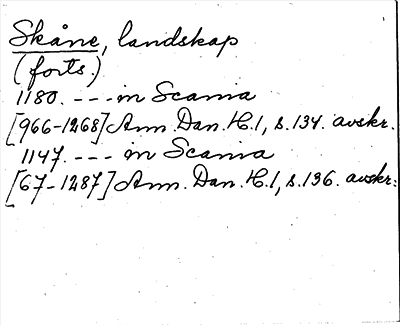 Skåne, landskap
(forts.)
1180. --- in Scania
[966-1268] Ann. Dan. H.1, s.134. avskr.
1147. --- in Scania
[67-1287] Ann. Dan. H.1, s.136. avskr.